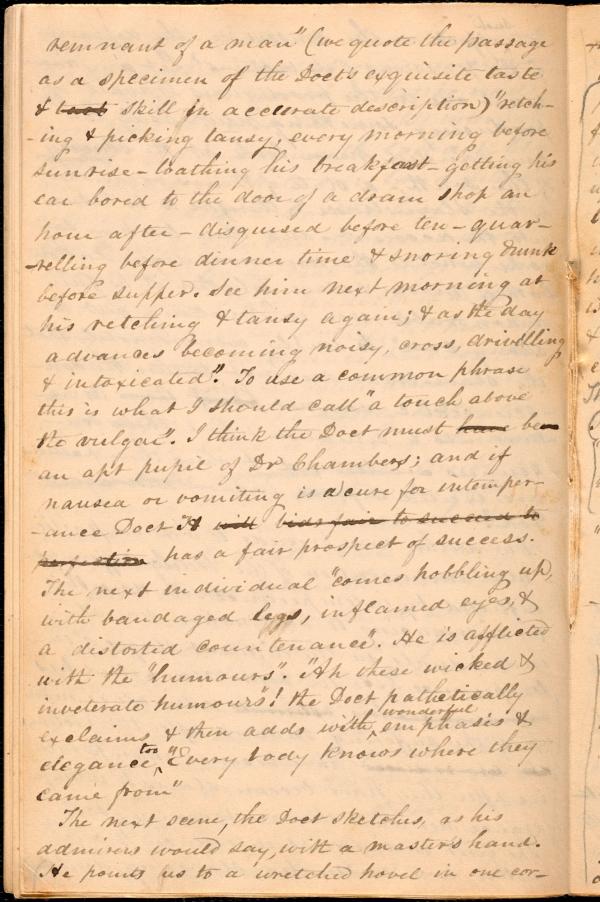 remnant of a man" (we quote the passage
as a specimen of the Doct's exquisite taste
& taot skill in accurate description) "retch-
-ing & picking tansy, every morning before
sunrise - loathing his breakfast - getting his
ear bored to the door of a dram shop an
hour after - disguised before ten - quar-
-relling before dinner time & snoring drunk
before supper. See him next morning at
his retching & tansy again; & as the day
advances becoming noisy, cross, drivelling
& intoxicated". To use a common phrase
this is what I should call "a touch above
the vulgar". I think the Doct must have been
an apt pupil of Dr Chambers; and if
nausea or vomiting is a cure for intemper-
-ance Doct H will bids fair to succeed to
perfection has a fair prospect of success.
The next individual "comes hobbling up,
with bandaged legs, inflamed eyes, &
a distorted countenance". He is afflicted
with the "humours". "Ah these wicked &
inveterate humours"! the Doct pathetically
exclaims & then adds with wonderful emphasis &
elegance too, "Every body knows where they
came from"
The next scene, the Doct sketches, as his
admirers would say, with a master's hand.
He points us to a wretched hovel in one cor-